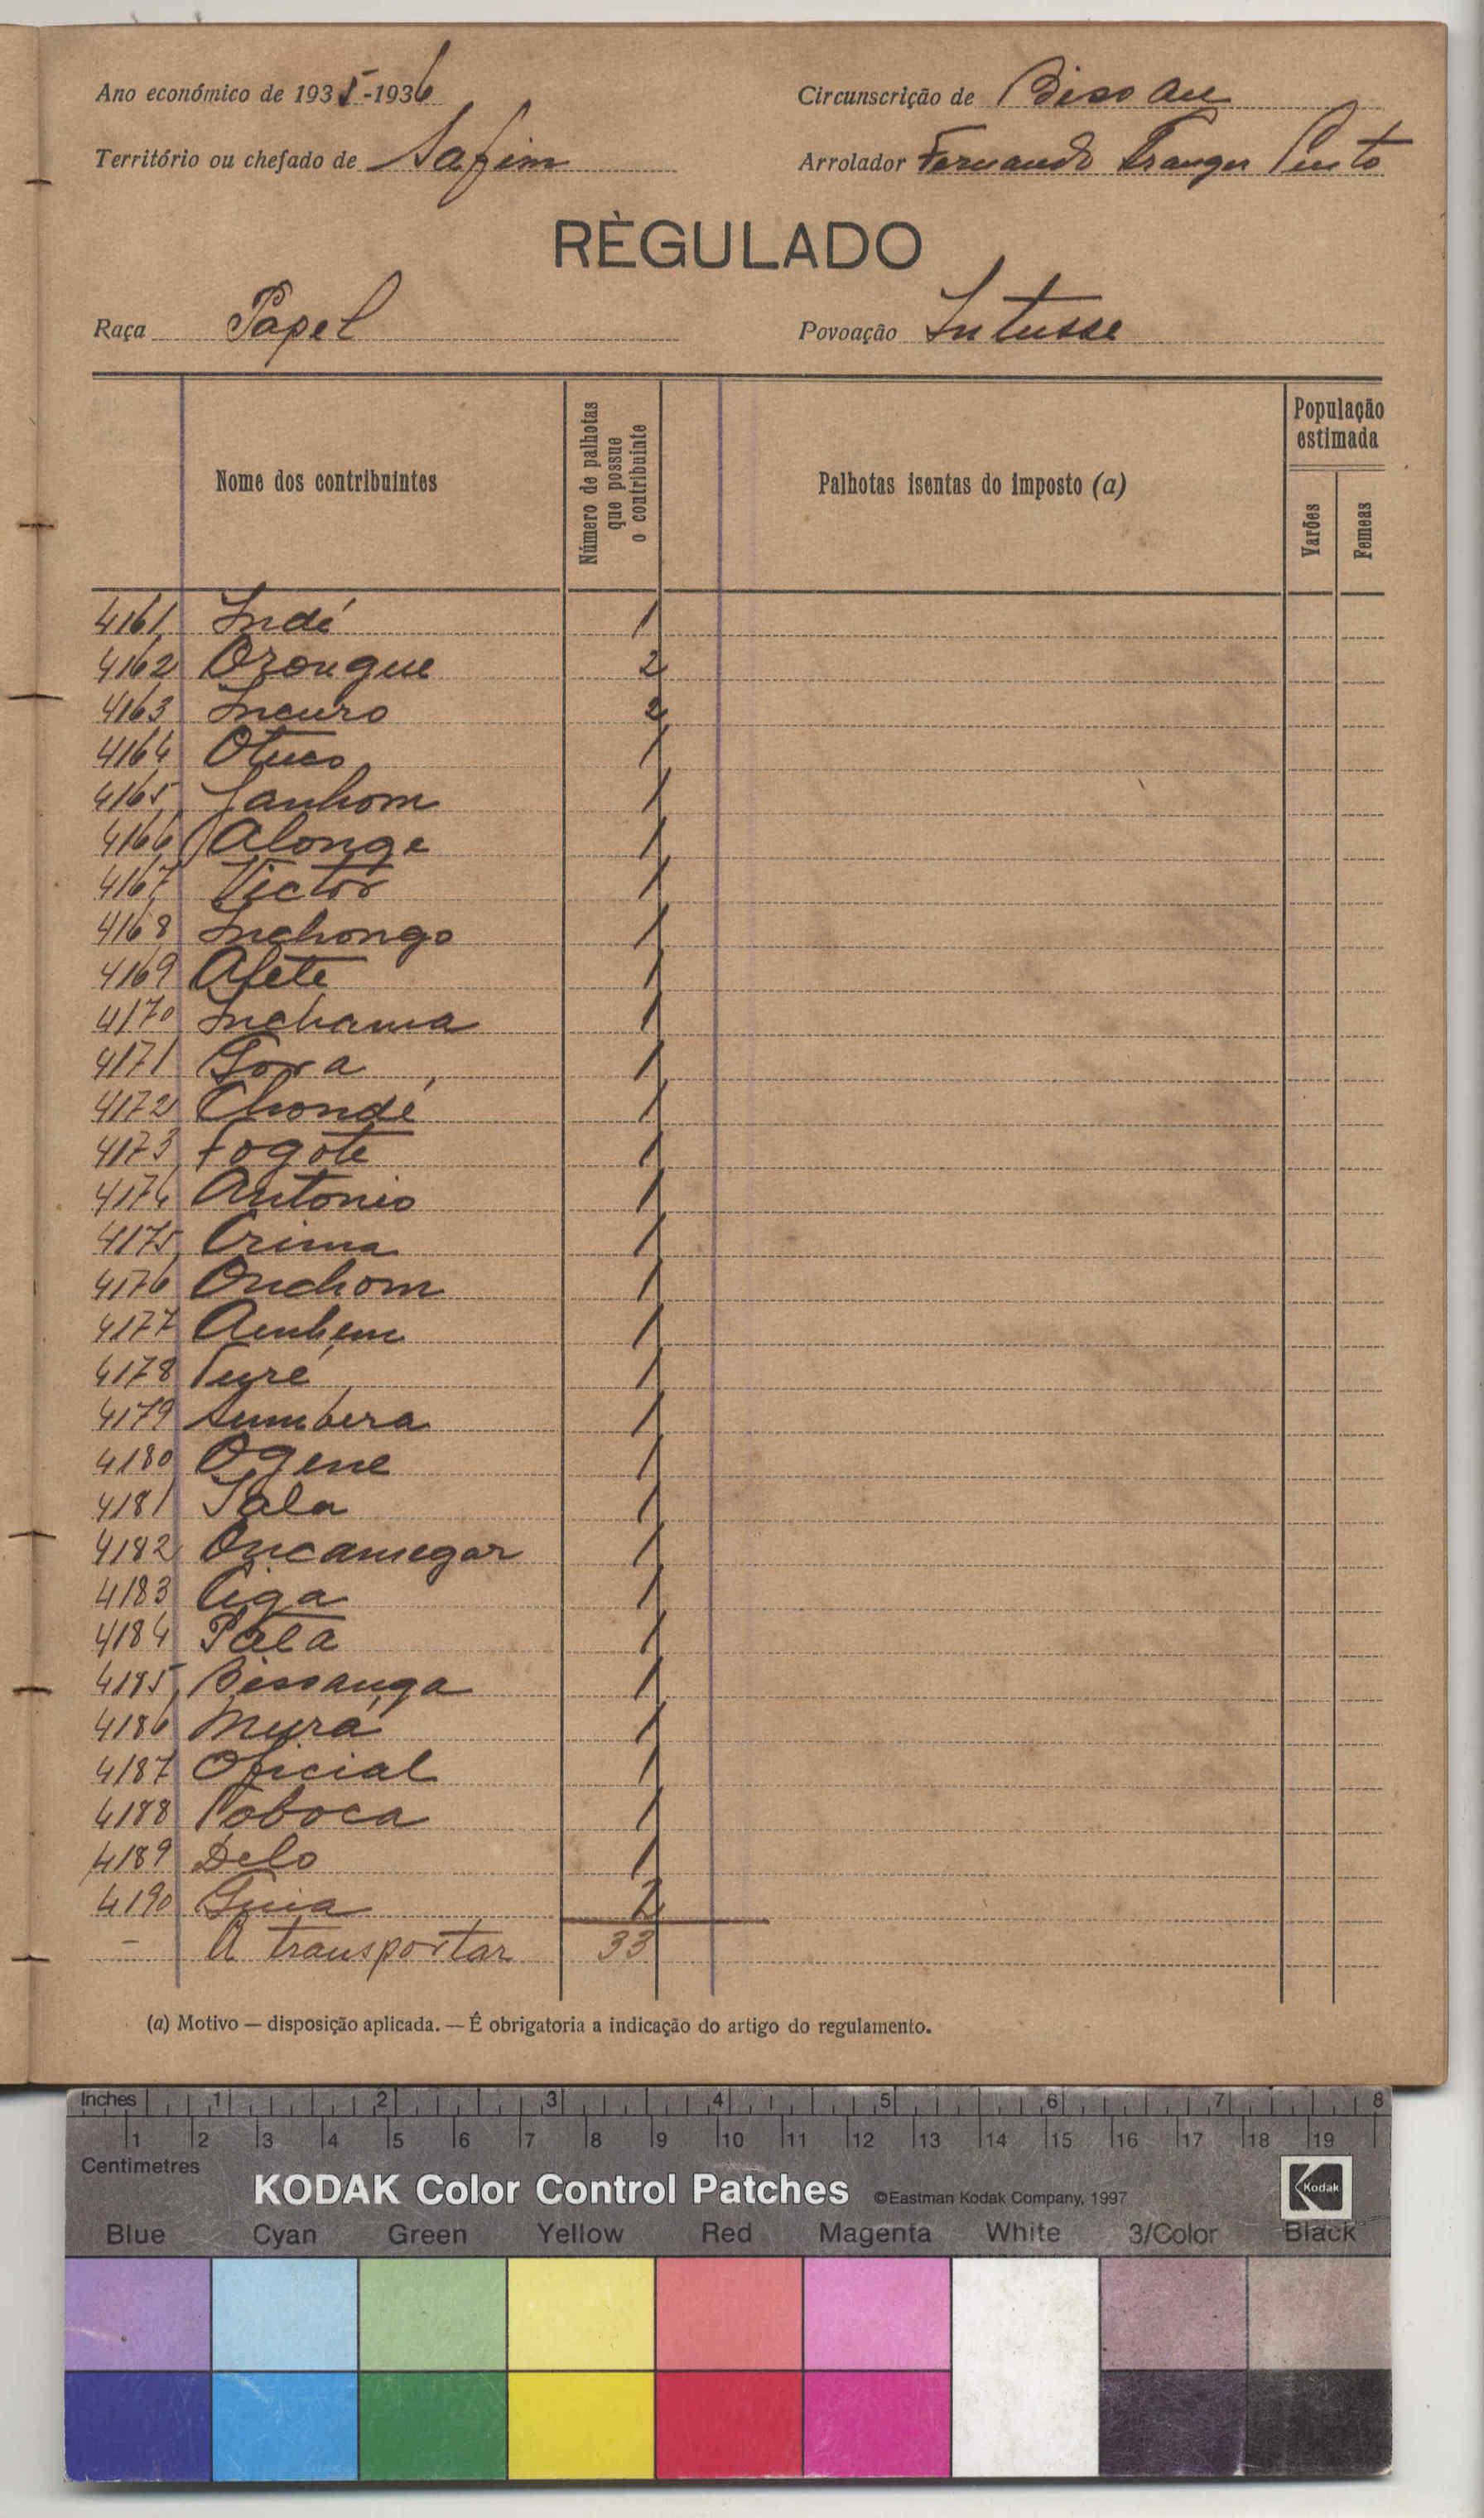 Ano económico de 1935-1936
Circunscrição de Bissau
Território ou chefado de Safim
Arrolador Fernando Pinto
RÈGULADO
Raça Papel
Povoação Intusse
Nome dos contribuintes
Número de palhotas que possue o contribuinte
Palhotas isentas do imposto (a)
População estimada
Varões
Femeas
4161 Indé 1
4162 Ozongue 2
4163 Incuro 2
4164 Otuco 1
4165 Janhom 1
4166 Alonge 1
4167 Victor 1
4168 Inchongo 1
4169 Afete 1
4170 Inchama 1
4171 1
4172 Chondé 1
4173 Fogote 1
4174 Antonio 1
4175 Crima 1
4176 Onchom 1
4177 1
4178 Turé 1
4179 Sumbera 1
4180 Ogene 1
4181 Sala 1
4182 1
4183 Ciga 1
4184 Pala 1
4185 Bissanga 1
4186 Murá 1
4187 Oficial 1
4188 Toboca 1
4189 Delo 1
4190 Guia 2
- A transportar 33
(a) Motivo — disposição aplicada. — É obrigatoria a indicação do artigo do regulamento.
Inches 1 2 3 4 5 6 7 8
1 2 3 4 5 6 7 8 9 10 11 12 13 14 15 16 17 18 19
Centimetres
KODAK Color Control Patches ©Eastman Kodak Company, 1997 Kodak
Blue Cyan Green Yellow Red Magenta White 3/Color Black